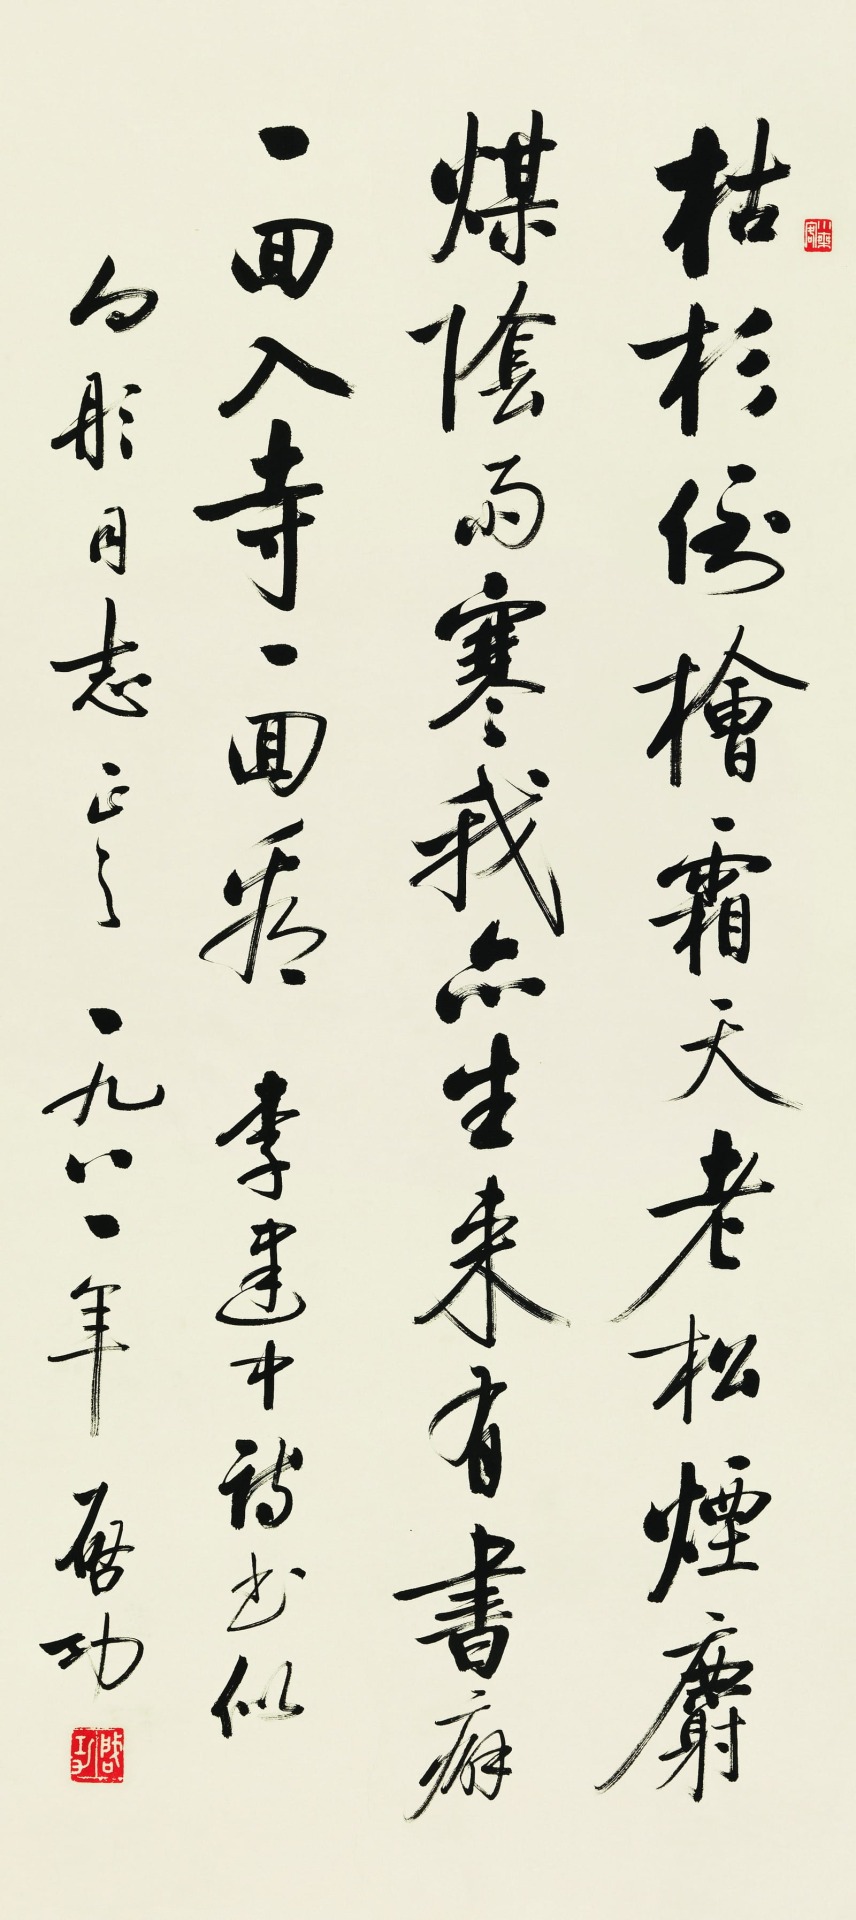 枯杉倒檜霜天老松煙麝
煤陰雨寒我亦生来有書癖
一回入寺一回看 李建中诗书似
向彤同志正之 一九八一年 启功
启功